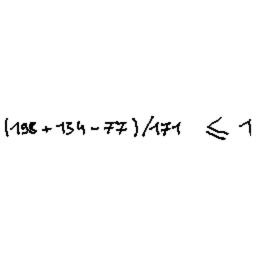 (198 + 134 - 77) / 171 ⩽ 1